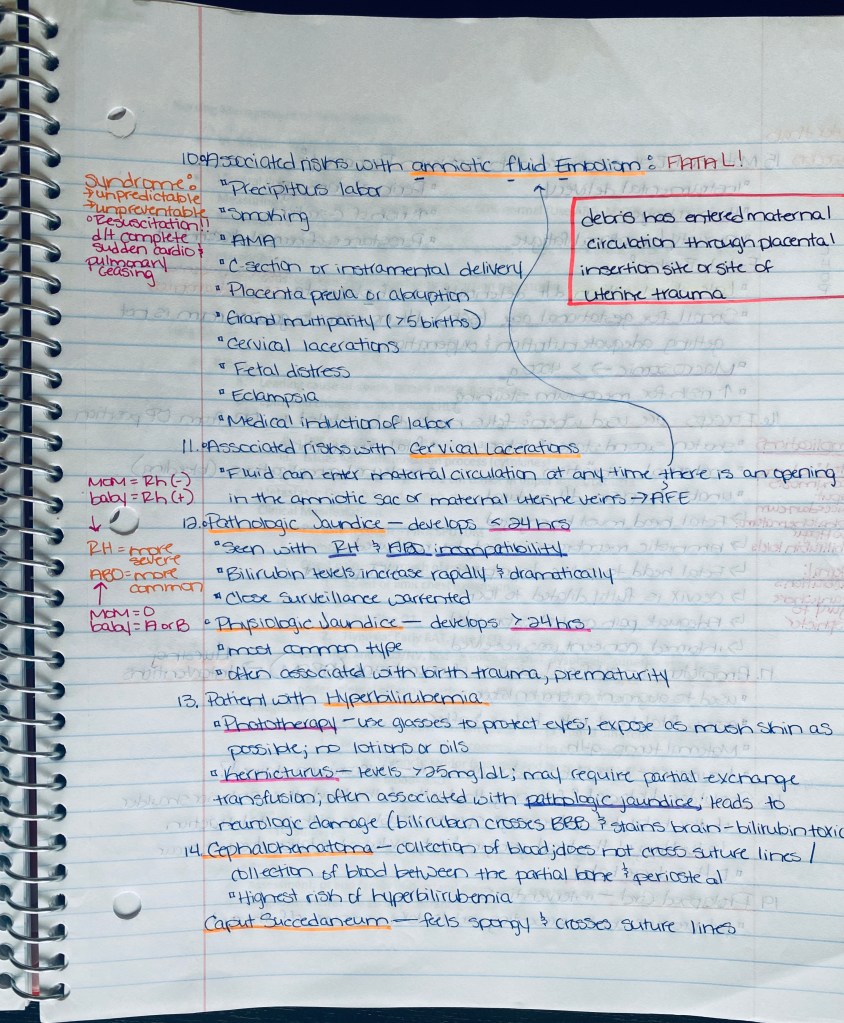 10. Associated risks with amniotic fluid Embolism: FATAL!
Syndrome:
→unpredictable
→unpreventable
Resuscitation!!
d/t complete
sudden cardio &
pulmonary
ceasing
Precipitous labor
Smoking
AMA
C section or instramental delivery
Placenta previa or abruption
Grand multiparity (>5 births)
Cervical lacerations
Fetal distress
Eclampsia
Medical induction of labor
debris has entered maternal
circulation through placental
insertion site or site of
uterine trauma
11. Associated risks with Cervical Lacerations
Fluid can enter maternal circulation at any time there is an opening
in the amniotic sac or maternal uterine veins → AFE
MOM = Rh (-)
baby = Rh (+)
12. Pathologic Jaundice — develops < 24 hrs
Seen with RH & ABO incompatibility
RH = more
severe
ABO = more
common
Bilirubin levels increase rapidly & dramatically
Close surveillance warrented
MOM = O
baby = A or B
Physiologic Jaundice — develops > 24 hrs
most common type
often associated with birth trauma, prematurity
13. Patient with Hyperbilirubemia
Phototherapy — use glasses to protect eyes; expose as mush skin as
possible; no lotions or oils
Kernicturus — levels >25mg/dL; may require partial exchange
transfusion; often associated with pathologic jaundice; leads to
neurologic damage (bilirubun crosses BBB & stains brain - bilirubin toxic
14. Cephalohematoma — collection of blood; does not cross suture lines /
collection of blood between the partial bone & periosteal
Highest risk of hyperbilirubemia
Caput Succedaneum — feels spongy & crosses suture lines